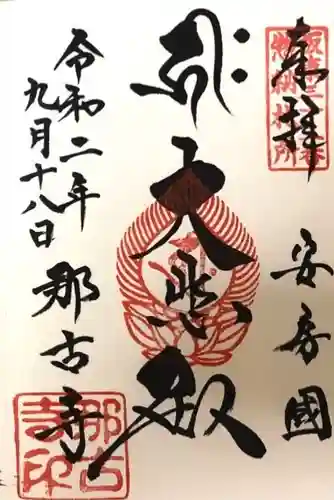 奉拝
安房國
大悲殿
令和二年
九月十八日
那古寺